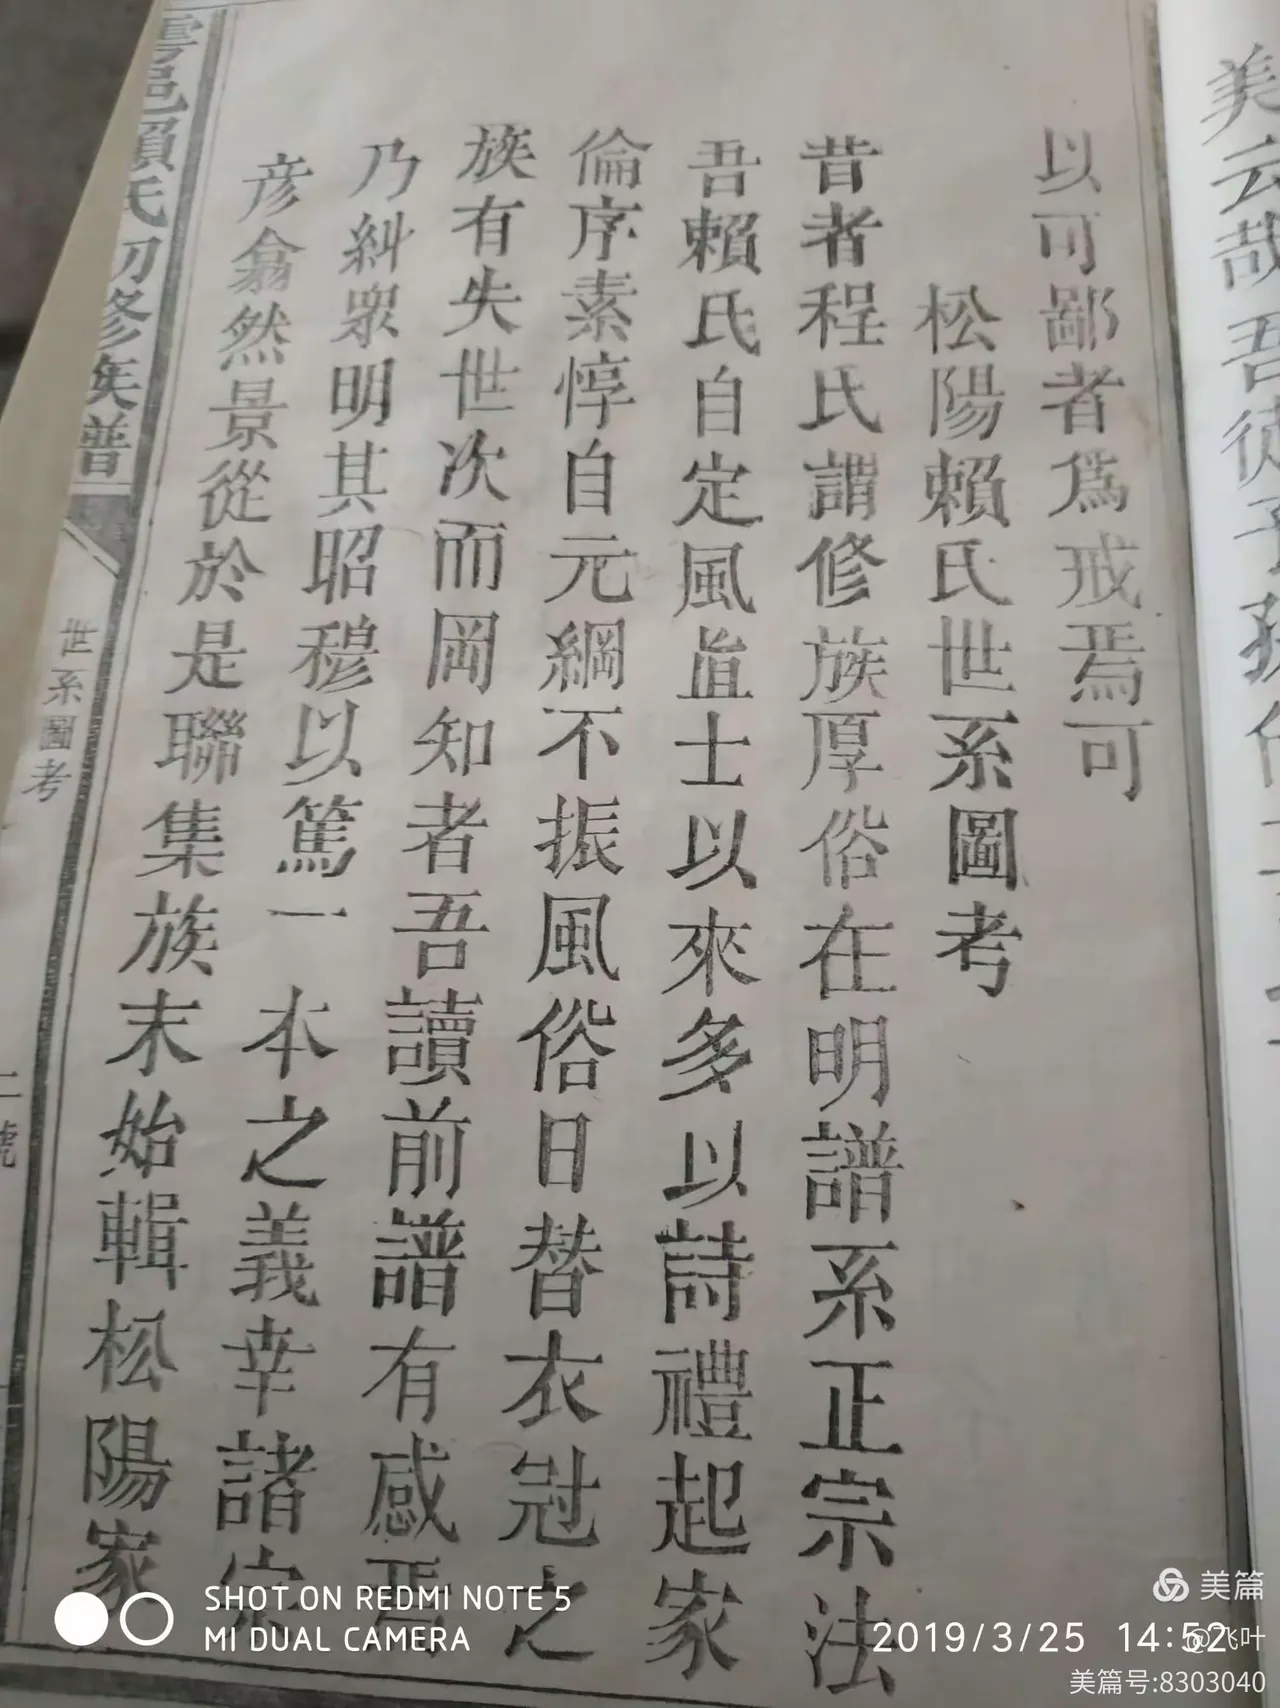 美云哉吾徒子孫
以可鄙者為戒焉可
松陽賴氏世系圖考
昔者程氏謂修族厚俗在明譜系正宗法
吾賴氏自定風直士以來多以詩禮起家
倫序素惇自元綱不振風俗日替衣冠之
族有失世次而罔知者吾讀前譜有感焉
乃糾眾明其昭穆以篤一本之義幸諸宗
彦翕然景從於是聯集族末始輯松陽家
雩邑賴氏初修族譜
世系圖考
二號
SHOT ON REDMI NOTE 5
MI DUAL CAMERA
美篇
2019/3/25 14:52
@飞叶
美篇号:8303040